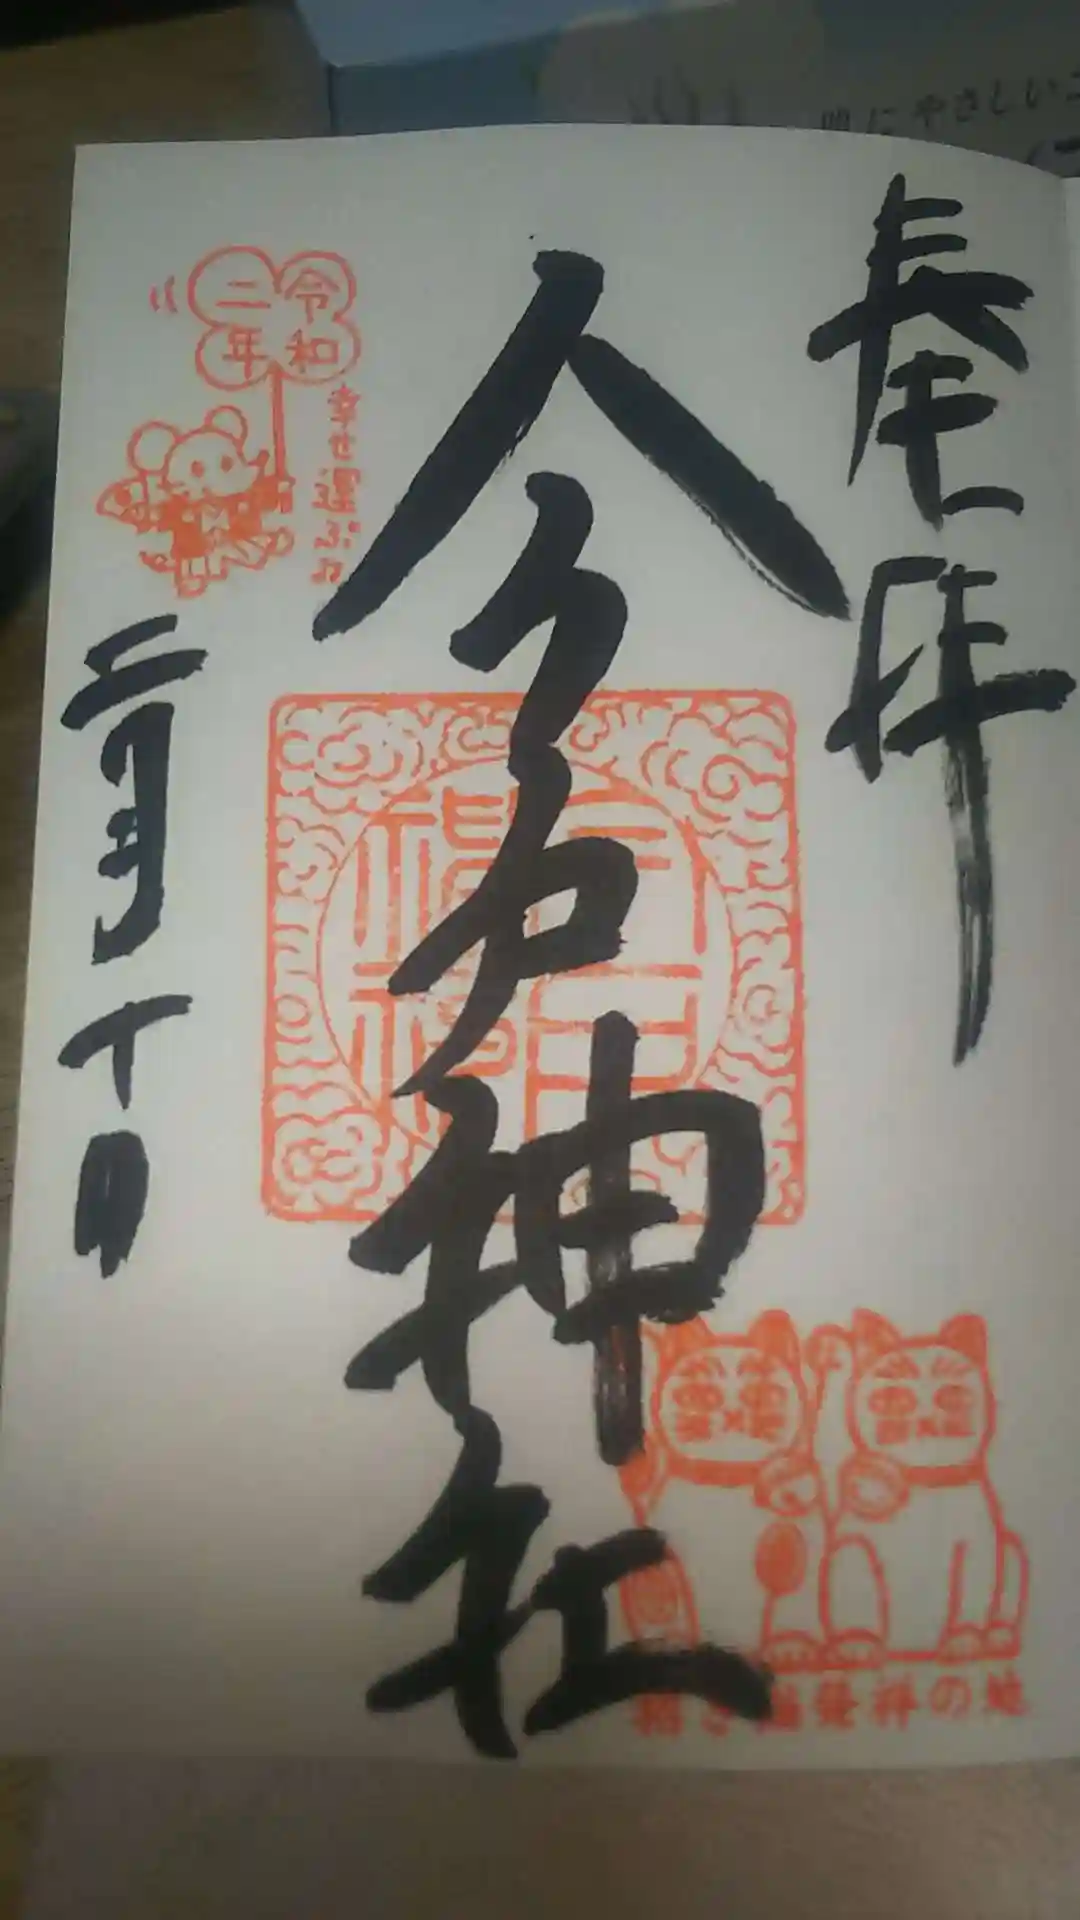 奉拝
今戸神社
令和
二年
幸せ運ぶよ
二月十日
招き猫発祥の地
にやさしい